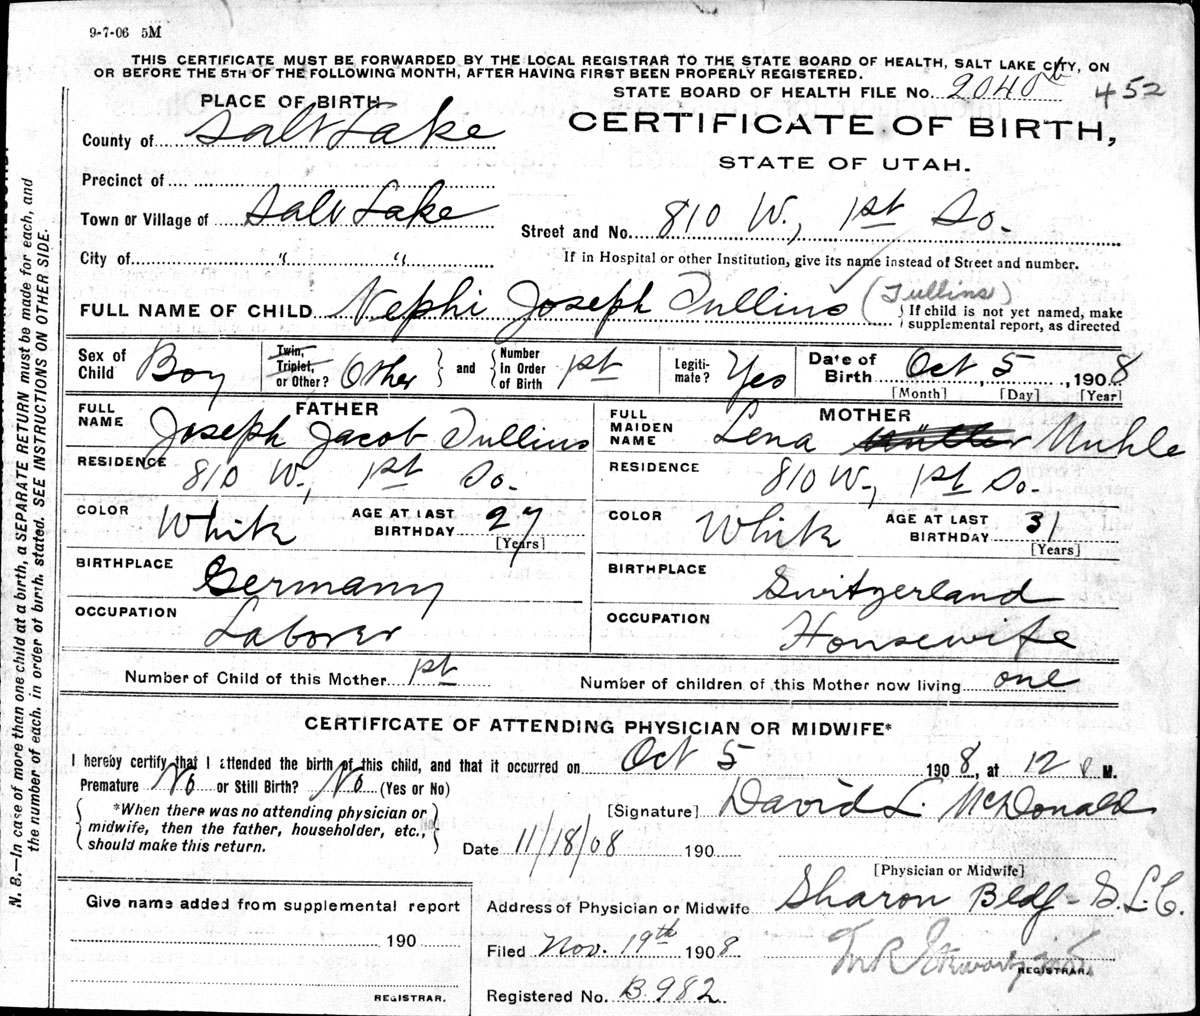 9-7-06 5M
THIS CERTIFICATE MUST BE FORWARDED BY THE LOCAL REGISTRAR TO THE STATE BOARD OF HEALTH, SALT LAKE CITY, ON
OR BEFORE THE 5TH OF THE FOLLOWING MONTH, AFTER HAVING FIRST BEEN PROPERLY REGISTERED.
STATE BOARD OF HEALTH FILE No. 2040 452
PLACE OF BIRTH
CERTIFICATE OF BIRTH,
STATE OF UTAH.
County of Salt Lake
Precinct of
Town or Village of Salt Lake
Street and No. 810 W., 1st So.
City of " "
If in Hospital or other Institution, give its name instead of Street and number.
FULL NAME OF CHILD Nephi Joseph Tullius (Tullius)
If child is not yet named, make
supplemental report, as directed
Sex of Child Boy Twin, Triplet, or Other? Other and Number in Order of Birth 1st Legiti-mate? Yes Date of Birth Oct 5, 1908
[Month] [Day] [Year]
FATHER
FULL NAME Joseph Jacob Tullius
RESIDENCE 810 W., 1st So.
COLOR White AGE AT LAST BIRTHDAY 27
[Years]
BIRTHPLACE Germany
OCCUPATION Laborer
MOTHER
FULL MAIDEN NAME Lena Muhle
RESIDENCE 810 W., 1st So.
COLOR White AGE AT LAST BIRTHDAY 31
[Years]
BIRTHPLACE Switzerland
OCCUPATION Housewife
Number of Child of this Mother 1st Number of children of this Mother now living one
CERTIFICATE OF ATTENDING PHYSICIAN OR MIDWIFE*
I hereby certify that I attended the birth of this child, and that it occurred on Oct 5 1908, at 12 P M.
Premature No or Still Birth? No (Yes or No)
*When there was no attending physician or
midwife, then the father, householder, etc.,
should make this return.
[Signature] David L. McDonald
Date 11/18/08 190
[Physician or Midwife]
Address of Physician or Midwife Sharon Bldg - S.L.C.
Give name added from supplemental report
190
REGISTRAR.
Filed Nov. 19th 1908
REGISTRAR.
Registered No. B 982
N. B.—In case of more than one child at a birth, a SEPARATE RETURN must be made for each, and
the number of each, in order of birth, stated. SEE INSTRUCTIONS ON OTHER SIDE.